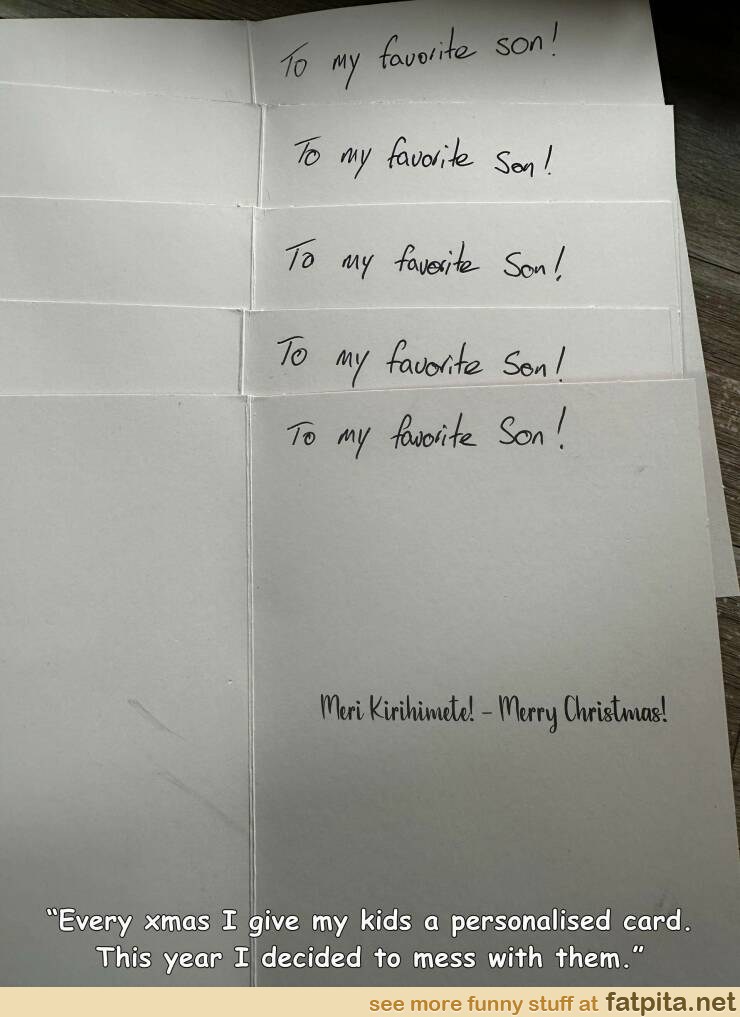 To my favorite son!
To my favorite Son!
To my favorite Son!
To my favorite Son!
To my favorite Son!
Meri Kirihimete! - Merry Christmas!
“Every xmas I give my kids a personalised card.
This year I decided to mess with them.”
see more funny stuff at fatpita.net